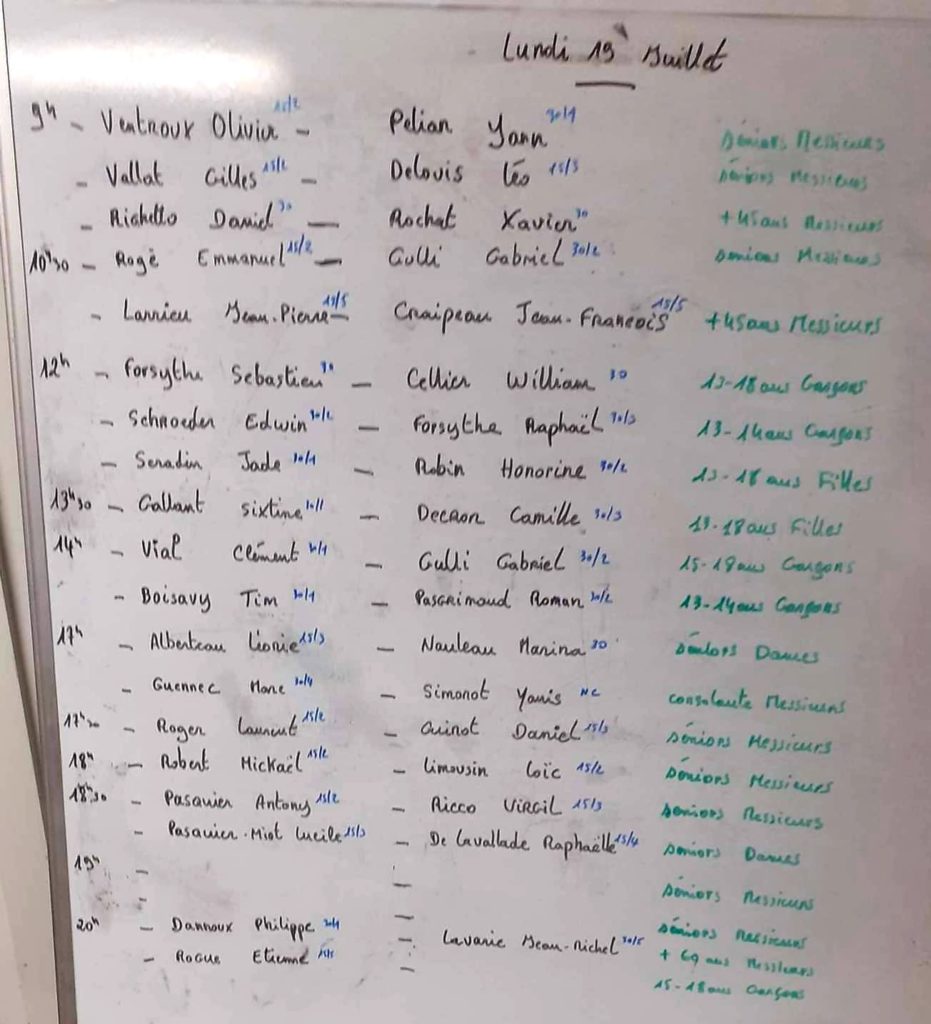 Lundi 19 Juillet
9h - Ventroux Olivier 15/2 - Pelian Yann 30/1 Séniors Messieurs
- Vallat Gilles 15/2 - Delouis Léo 15/3 Séniors Messieurs
- Richetto Daniel 30 - Rochat Xavier 30 +45ans Messieurs
10h30 - Rogé Emmanuel 15/2 - Gulli Gabriel 30/2 Séniors Messieurs
- Larrieu Jean-Pierre 15/5 - Craipeau Jean-François 15/5 +45ans Messieurs
12h - Forsythe Sebastien 30 - Cellier William 30 13-18ans Garçons
- Schroeder Edwin 30/2 - Forsythe Raphaël 30/3 13-14ans Garçons
- Seradin Jade 30/1 - Robin Honorine 30/2 13-18ans Filles
13h30 - Gallant Sixtine 30/1 - Decron Camille 30/3 13-18ans Filles
14h - Vial Clément 30/1 - Gulli Gabriel 30/2 15-18ans Garçons
- Boisavy Tim 30/1 - Pasgrimaud Roman 30/2 13-14ans Garçons
17h - Alberteau Léonie 15/3 - Nauleau Marina 30 Séniors Dames
- Guennec Marc 30/4 - Simonot Yanis NC consolante Messieurs
17h30 - Roger Laurent 15/2 - Guinot Daniel 15/3 Séniors Messieurs
18h - Robert Mickaël 15/2 - Limousin Loïc 15/2 Séniors Messieurs
18h30 - Pasquier Antony 15/2 - Ricco Virgil 15/3 Séniors Messieurs
- Pasquier-Miot Lucile 15/3 - De Lavallade Raphaëlle 15/4 Séniors Dames
19h - - Séniors Messieurs
- Séniors Messieurs
20h - Dannoux Philippe - Lavarie Jean-Michel 30/5 + 69 ans Messieurs
- Rogue Etienne - 15-18ans Garçons